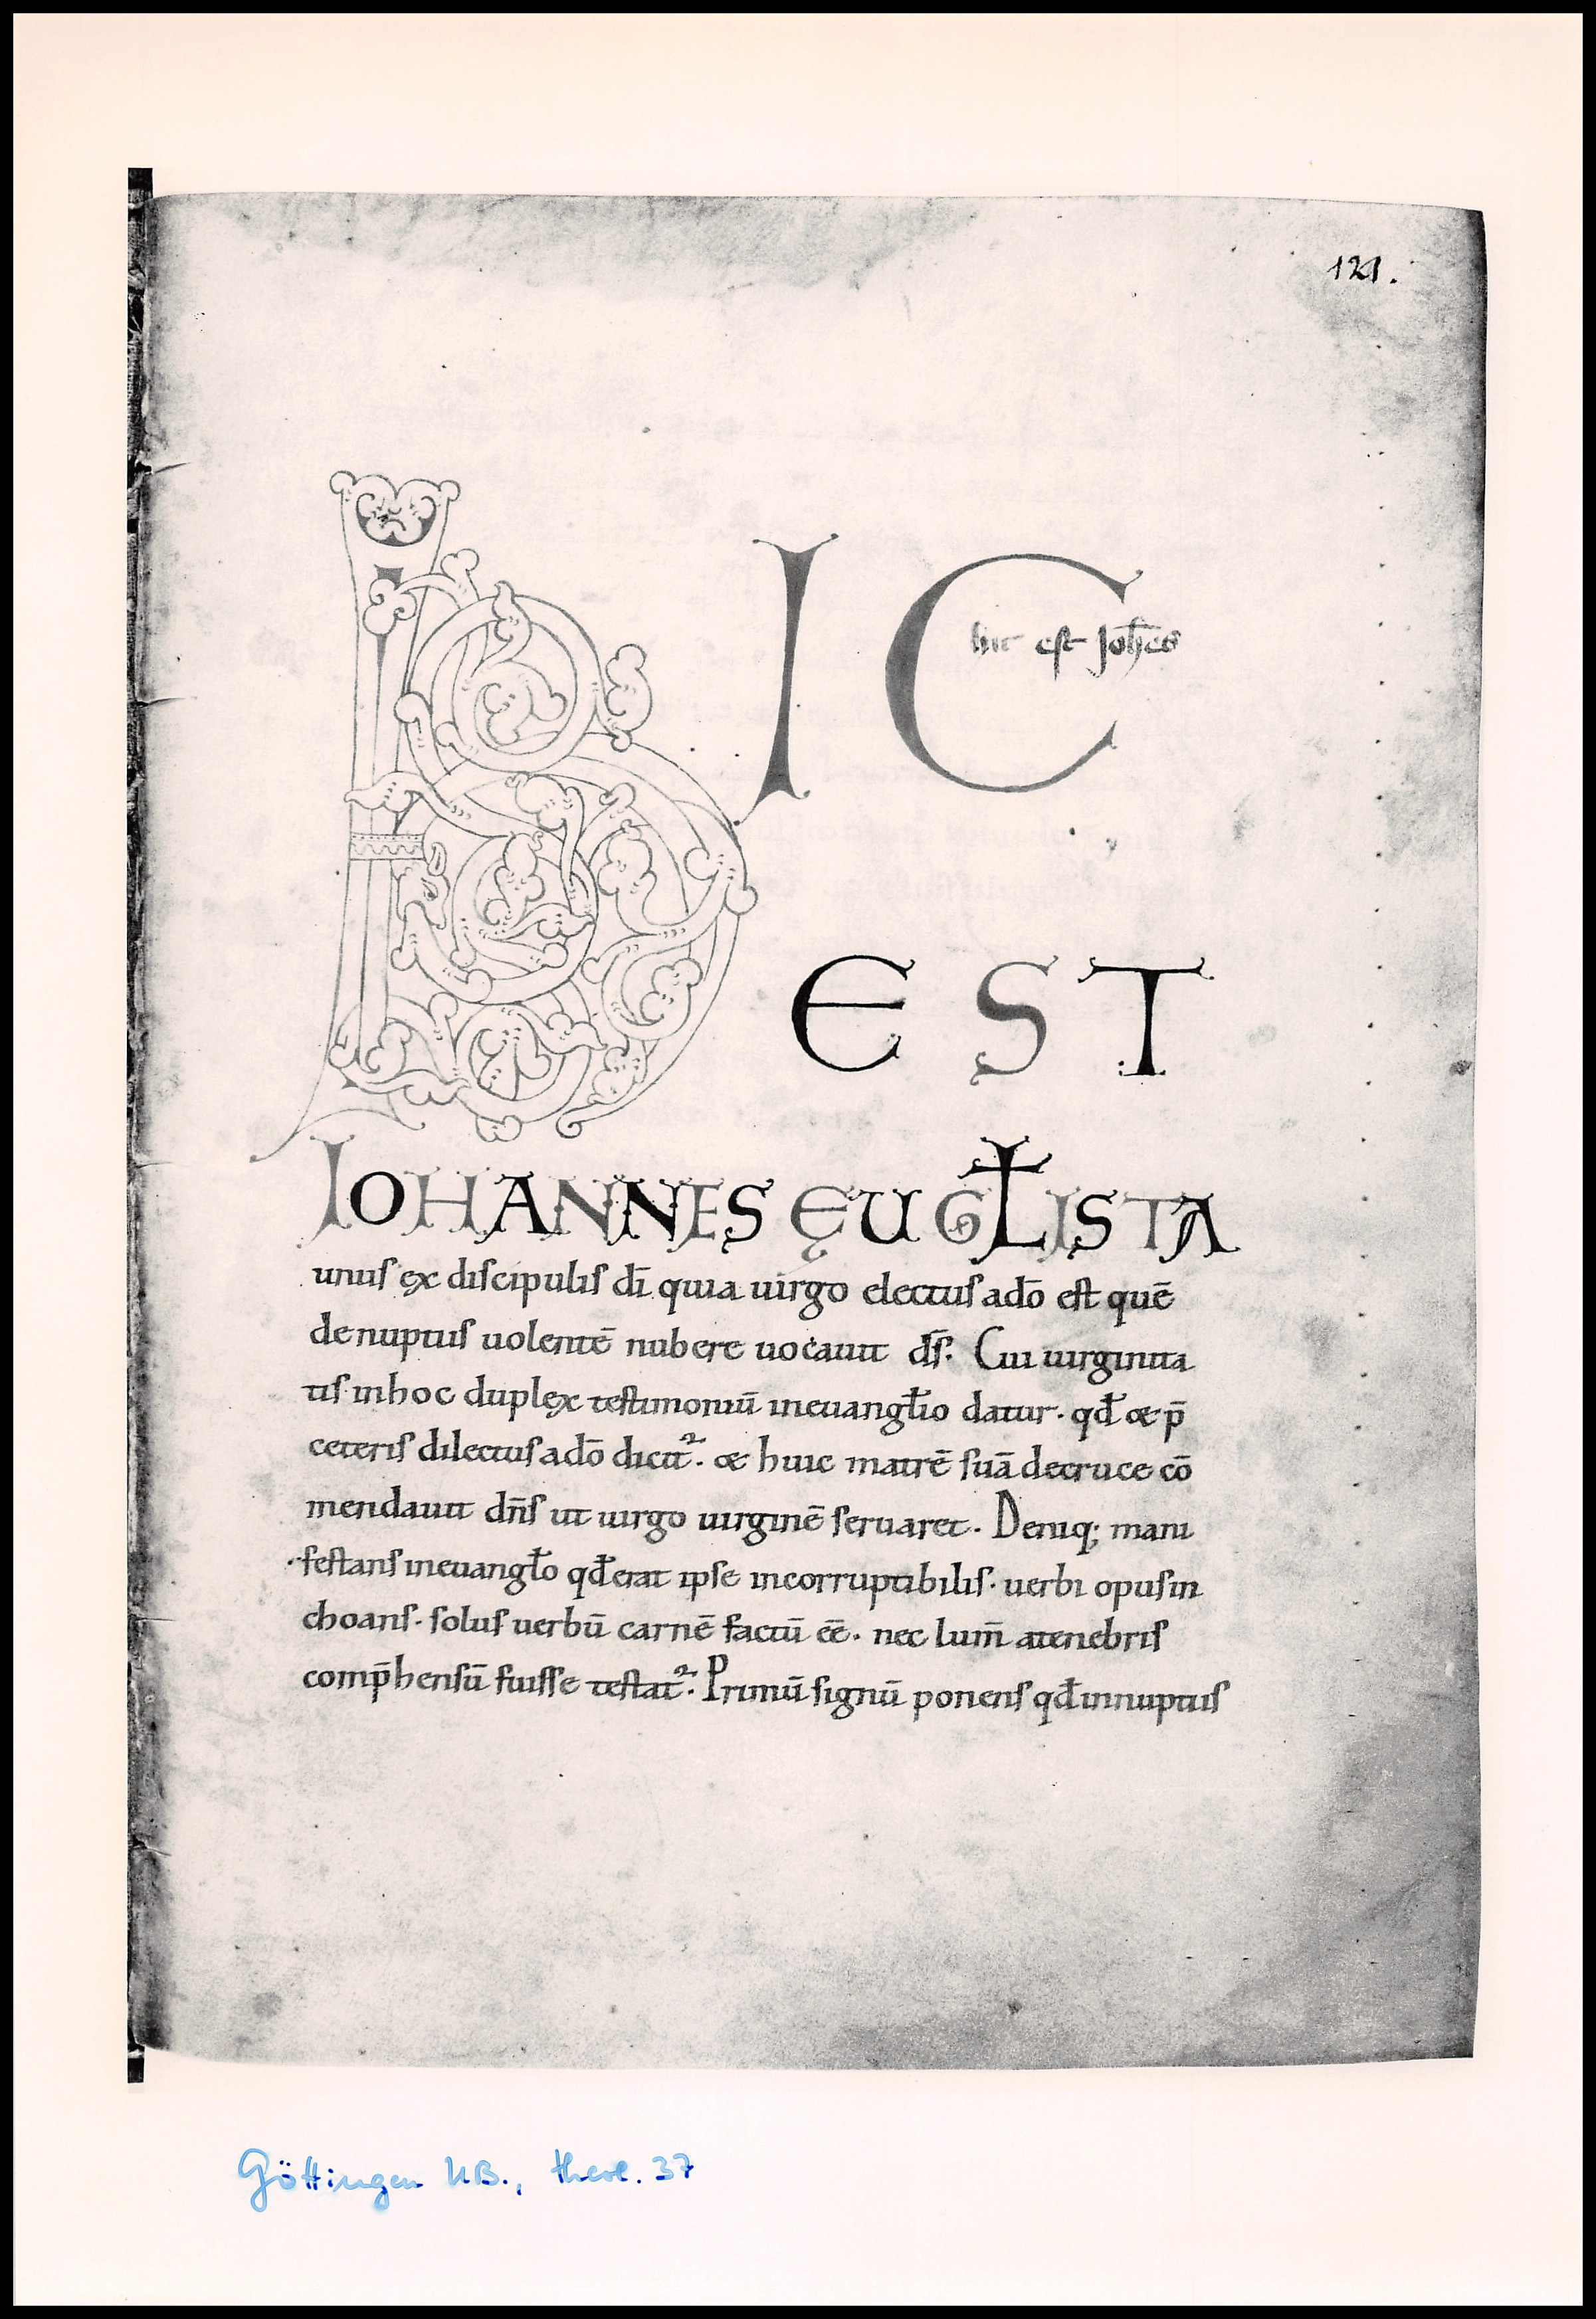 121.
hIC
hic est Joh̄es
EST
IOHANNES ĘUGŁISTA
unuſ ex diſcipuliſ dī quia uirgo electuſ adō eſt quē
denuptiiſ uolentē nubere uocauit dſ̄. Cui uirginita
tiſ inhoc duplex teſtimoniū ineuangƚio datur· qđ & p̄
ceteriſ dilectuſ adō dicit᷑. & huic matrē ſuā decruce cō
mendauit dn̄ſ ut uirgo uirginē ſeruaret. Deniq; mani
feſtanſ ineuangƚo qđ erat ipſe incorruptibiliſ· uerbi opuſ in
choanſ· ſoluſ uerbū carnē factū eē· nec lum̄ atenebriſ
comp̄henſū fuiſſe teſtat᷑. Primū ſignū ponenſ qđ innuptiiſ
Göttingen UB., theol. 37